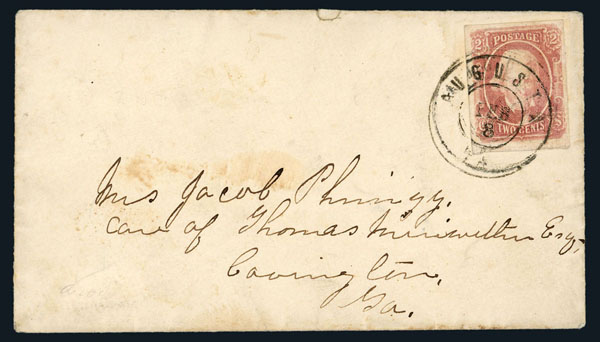 2 POSTAGE 2
TWO CENTS
AUGUSTA
FEB
8
GA
Mrs Jacob Phinizy.
Care of Thomas Meriwether Esq.
Covington,
Ga.